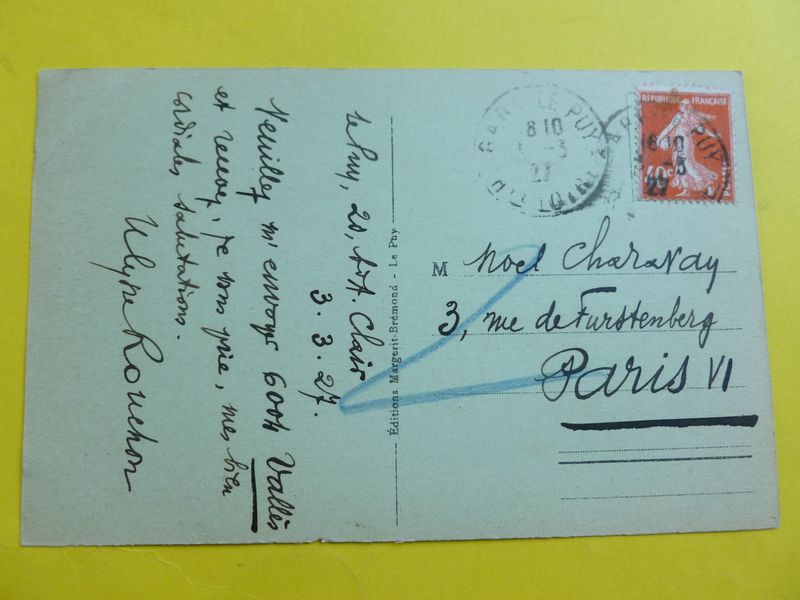 Le Puy, 20, bd. St. Clair
3. 3. 27.
Veuillez m'envoyer 6004 Vallès
et renvoy, je vous prie, mes bien
cordiales salutations.
Ulysse Rouchon
Éditions Margerit-Brémond - Le Puy
GARE LE PUY
8 10
-3
27
HTE LOIRE
RÉPUBLIQUE FRANÇAISE
40c
GARE LE PUY
18 10
-3
27
M Noel Charavay
3, rue de Furstenberg
Paris VI